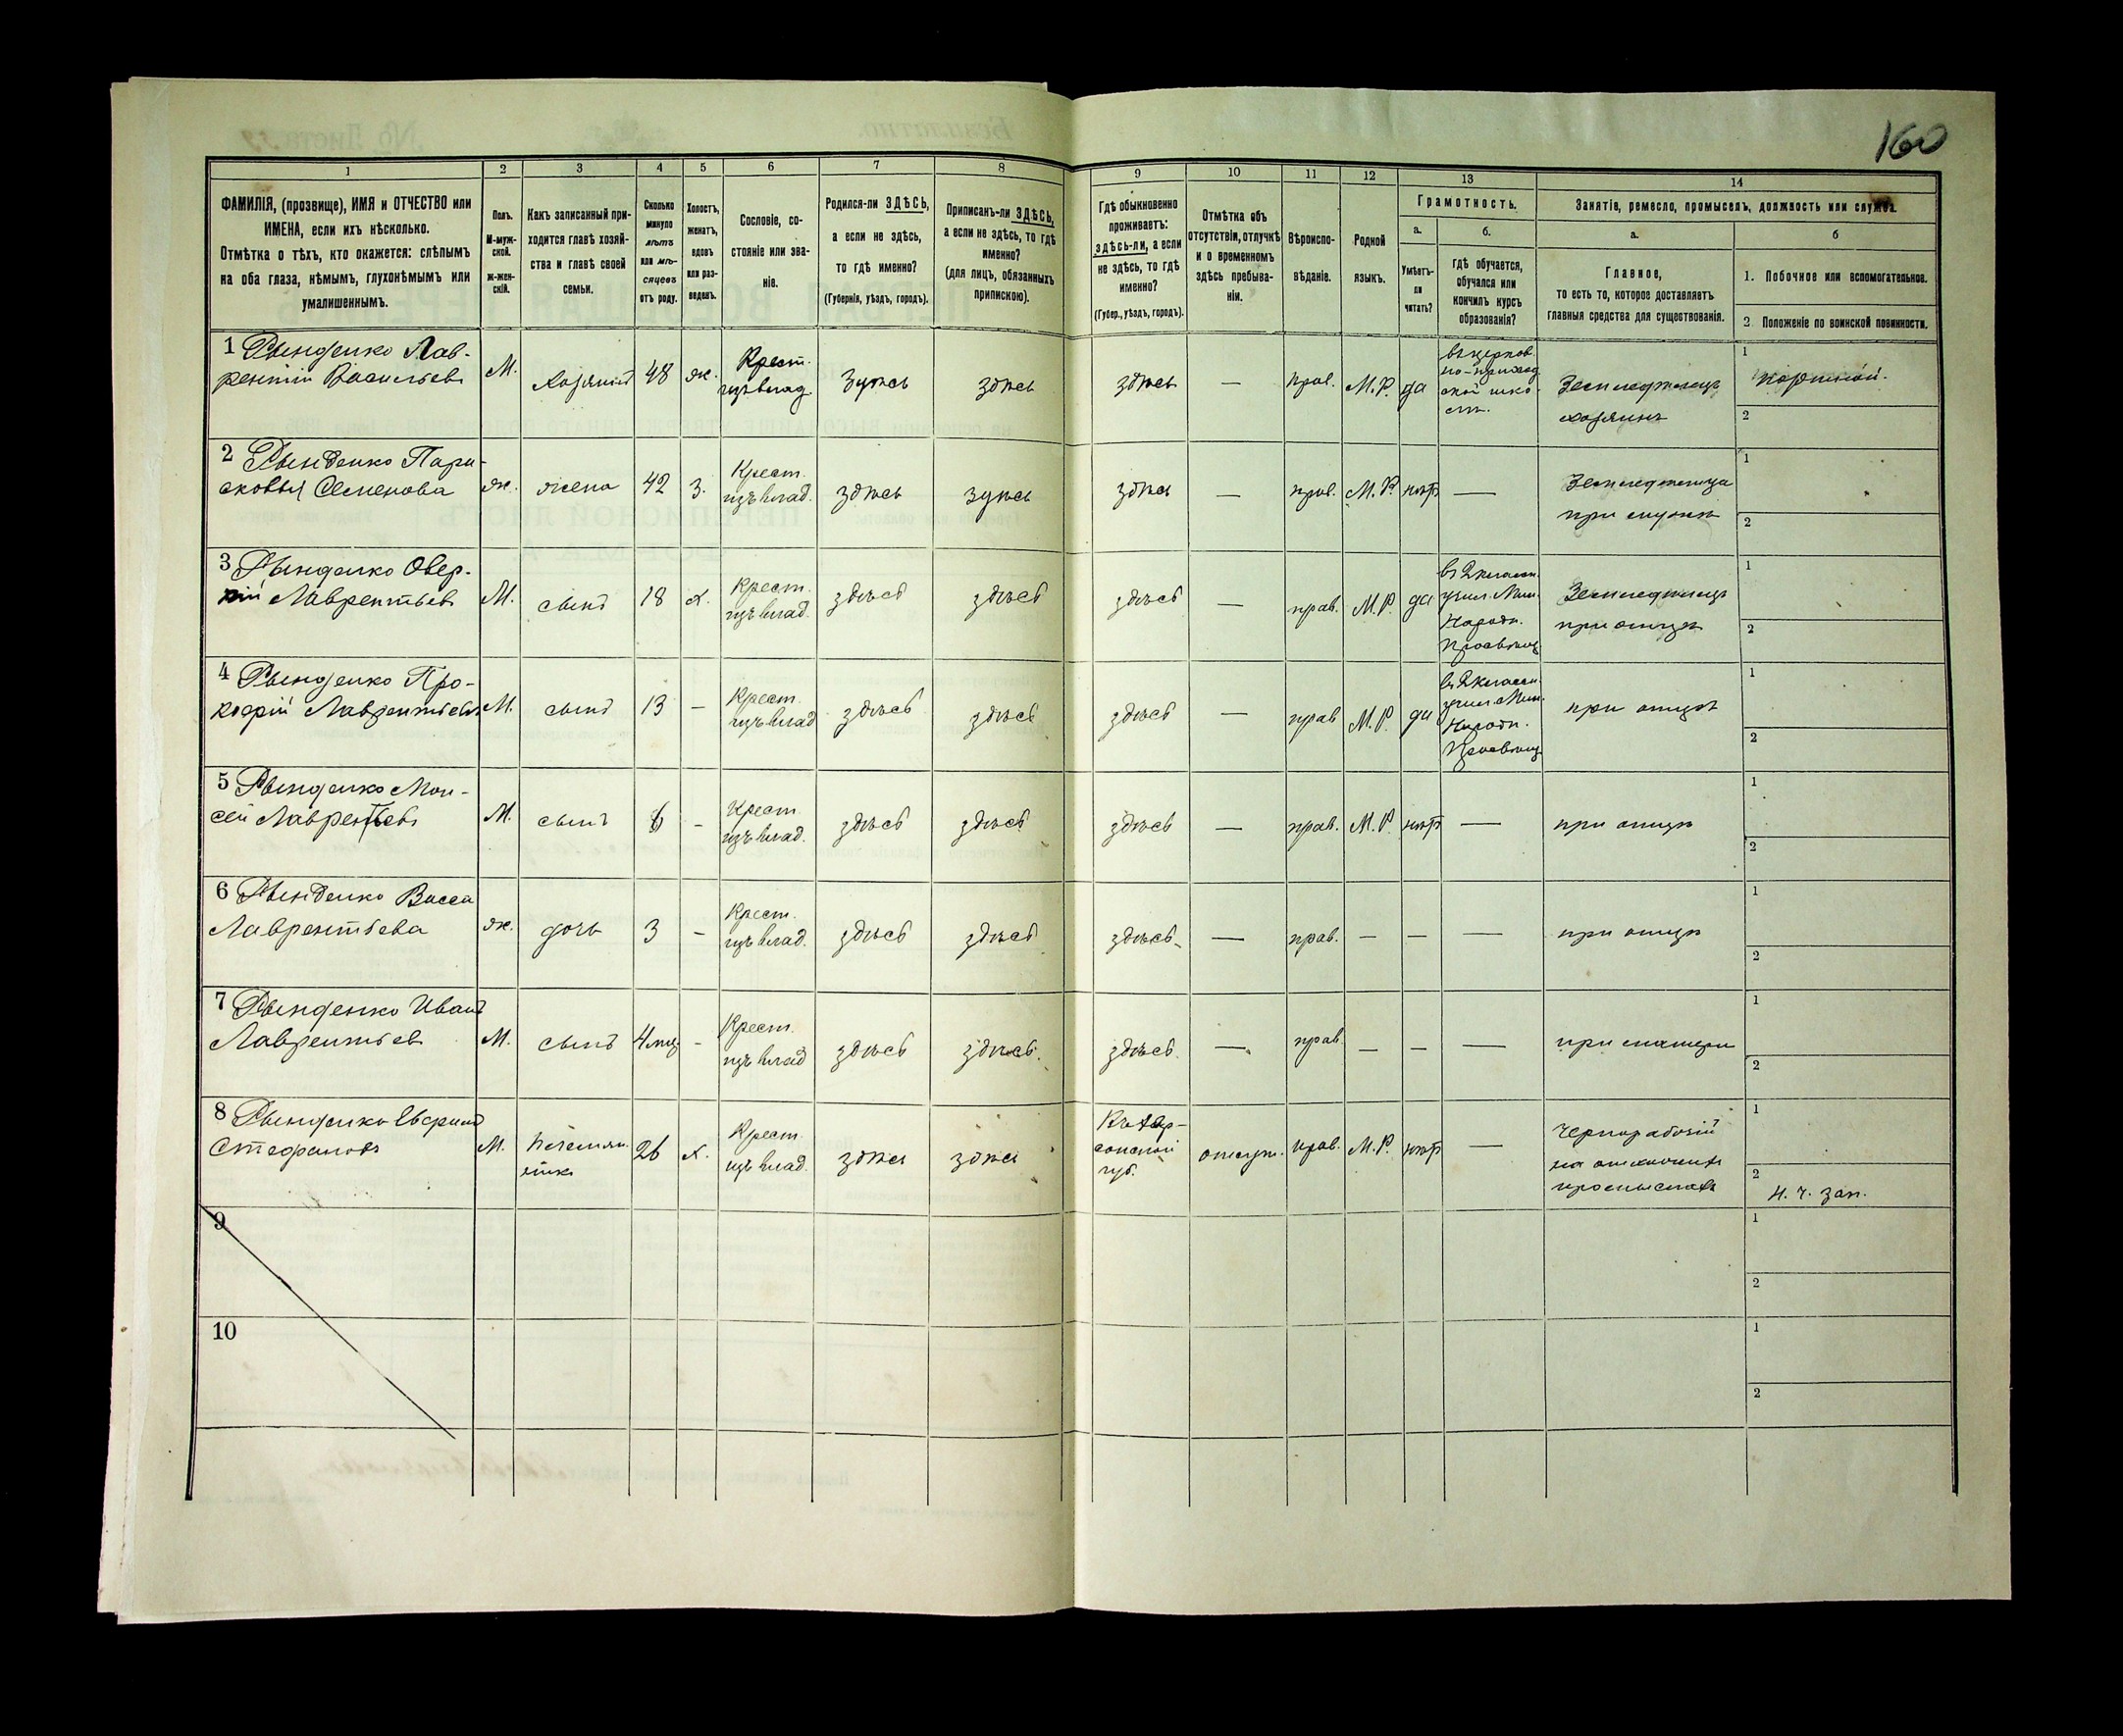 160
1
2
3
4
5
6
7
8
9
10
11
12
13
14
ФАМИЛІЯ, (прозвище), ИМЯ и ОТЧЕСТВО или
ИМЕНА, если ихъ нѣсколько.
Отмѣтка о тѣхъ, кто окажется: слѣпымъ
на оба глаза, нѣмымъ, глухонѣмымъ или
умалишеннымъ.
Полъ.
М-муж-
ской.
ж-жен-
скій.
Какъ записанный при-
ходится главѣ хозяй-
ства и главѣ своей
семьи.
Сколько
минуло
лѣтъ
или мѣ-
сяцевъ
отъ роду.
Холостъ,
женатъ,
вдовъ
или раз-
веденъ.
Сословіе, со-
стояніе или зва-
ніе.
Родился-ли ЗДѢСЬ,
а если не здѣсь,
то гдѣ именно?
(Губернія, уѣздъ, городъ).
Приписанъ-ли ЗДѢСЬ,
а если не здѣсь, то гдѣ
именно?
(для лицъ, обязанныхъ
припискою).
Гдѣ обыкновенно
проживаетъ:
здѣсь-ли, а если
не здѣсь, то гдѣ
именно?
(Губер., уѣздъ, городъ).
Отмѣтка объ
отсутствіи, отлучкѣ
и о временномъ
здѣсь пребыва-
ніи.
Вѣроиспо-
вѣданіе.
Родной
языкъ.
Грамотность.
а.
б.
Умѣетъ-
ли
читать?
гдѣ обучается,
обучался или
кончилъ курсъ
образованія?
Занятіе, ремесло, промыселъ, должность или служба.
а.
б
Главное,
то есть то, которое доставляетъ
главныя средства для существованія.
1. Побочное или вспомогательное.
2 Положеніе по воинской повинности.
1 Рынденко Лав-
рентій Васильевъ
М.
хозяинъ
48
ж.
Крест.
изъ влад.
здѣсь
здѣсь
здѣсь
—
прав.
М.Р.
да
въ церков.
но-приход
ской шко-
лѣ.
Земледѣлецъ
хозяинъ
1
портной.
2
2 Рынденко Пара-
сковья Семенова
ж.
жена
42
з.
Крест.
изъ влад.
здѣсь
здѣсь
здѣсь
—
прав.
М.Р.
нѣтъ
—
Земледѣлица
при мужѣ
1
2
3 Рынденко Овер-
кій Лаврентьевъ
М.
сынъ
18
х.
Крест.
изъ влад.
здѣсь
здѣсь
здѣсь
—
прав.
М.Р.
да
въ 2 классн.
учил. Мин.
Народн.
Просвѣщ.
Земледѣлецъ
при отцѣ
1
2
4 Рынденко Про-
кофій Лаврентьевъ
М.
сынъ
13
-
Крест.
изъ влад
здѣсь
здѣсь
здѣсь
—
прав
М.Р.
да
въ 2 классн.
учил. Мин.
Народн.
Просвѣщ.
при отцѣ
1
2
5 Рынденко Мои-
сей Лаврентьевъ
М.
сынъ
6
-
Крест.
изъ влад.
здѣсь
здѣсь
здѣсь
—
прав.
М.Р.
нѣтъ
—
при отцѣ
1
2
6 Рынденко Васса
Лаврентьева
ж.
дочь
3
-
Крест.
изъ влад.
здѣсь
здѣсь
здѣсь
—
прав.
—
—
—
при отцѣ
1
2
7 Рынденко Иванъ
Лаврентьев
М.
сынъ
4 мѣс.
-
Крест.
изъ влад
здѣсь
здѣсь
здѣсь.
—
прав.
—
—
—
при матери
1
2
8 Рынденко
Стефановъ
М.
племян.
никъ
26
х.
Крест.
изъ влад.
здѣсь
здѣсь
Въ Хер-
сонской
губ.
отлуч.
прав.
М.Р.
нѣтъ
—
Чернорабочій
на отхожихъ
промыслахъ
1
2
Н. ч. зап.
9
1
2
10
1
2